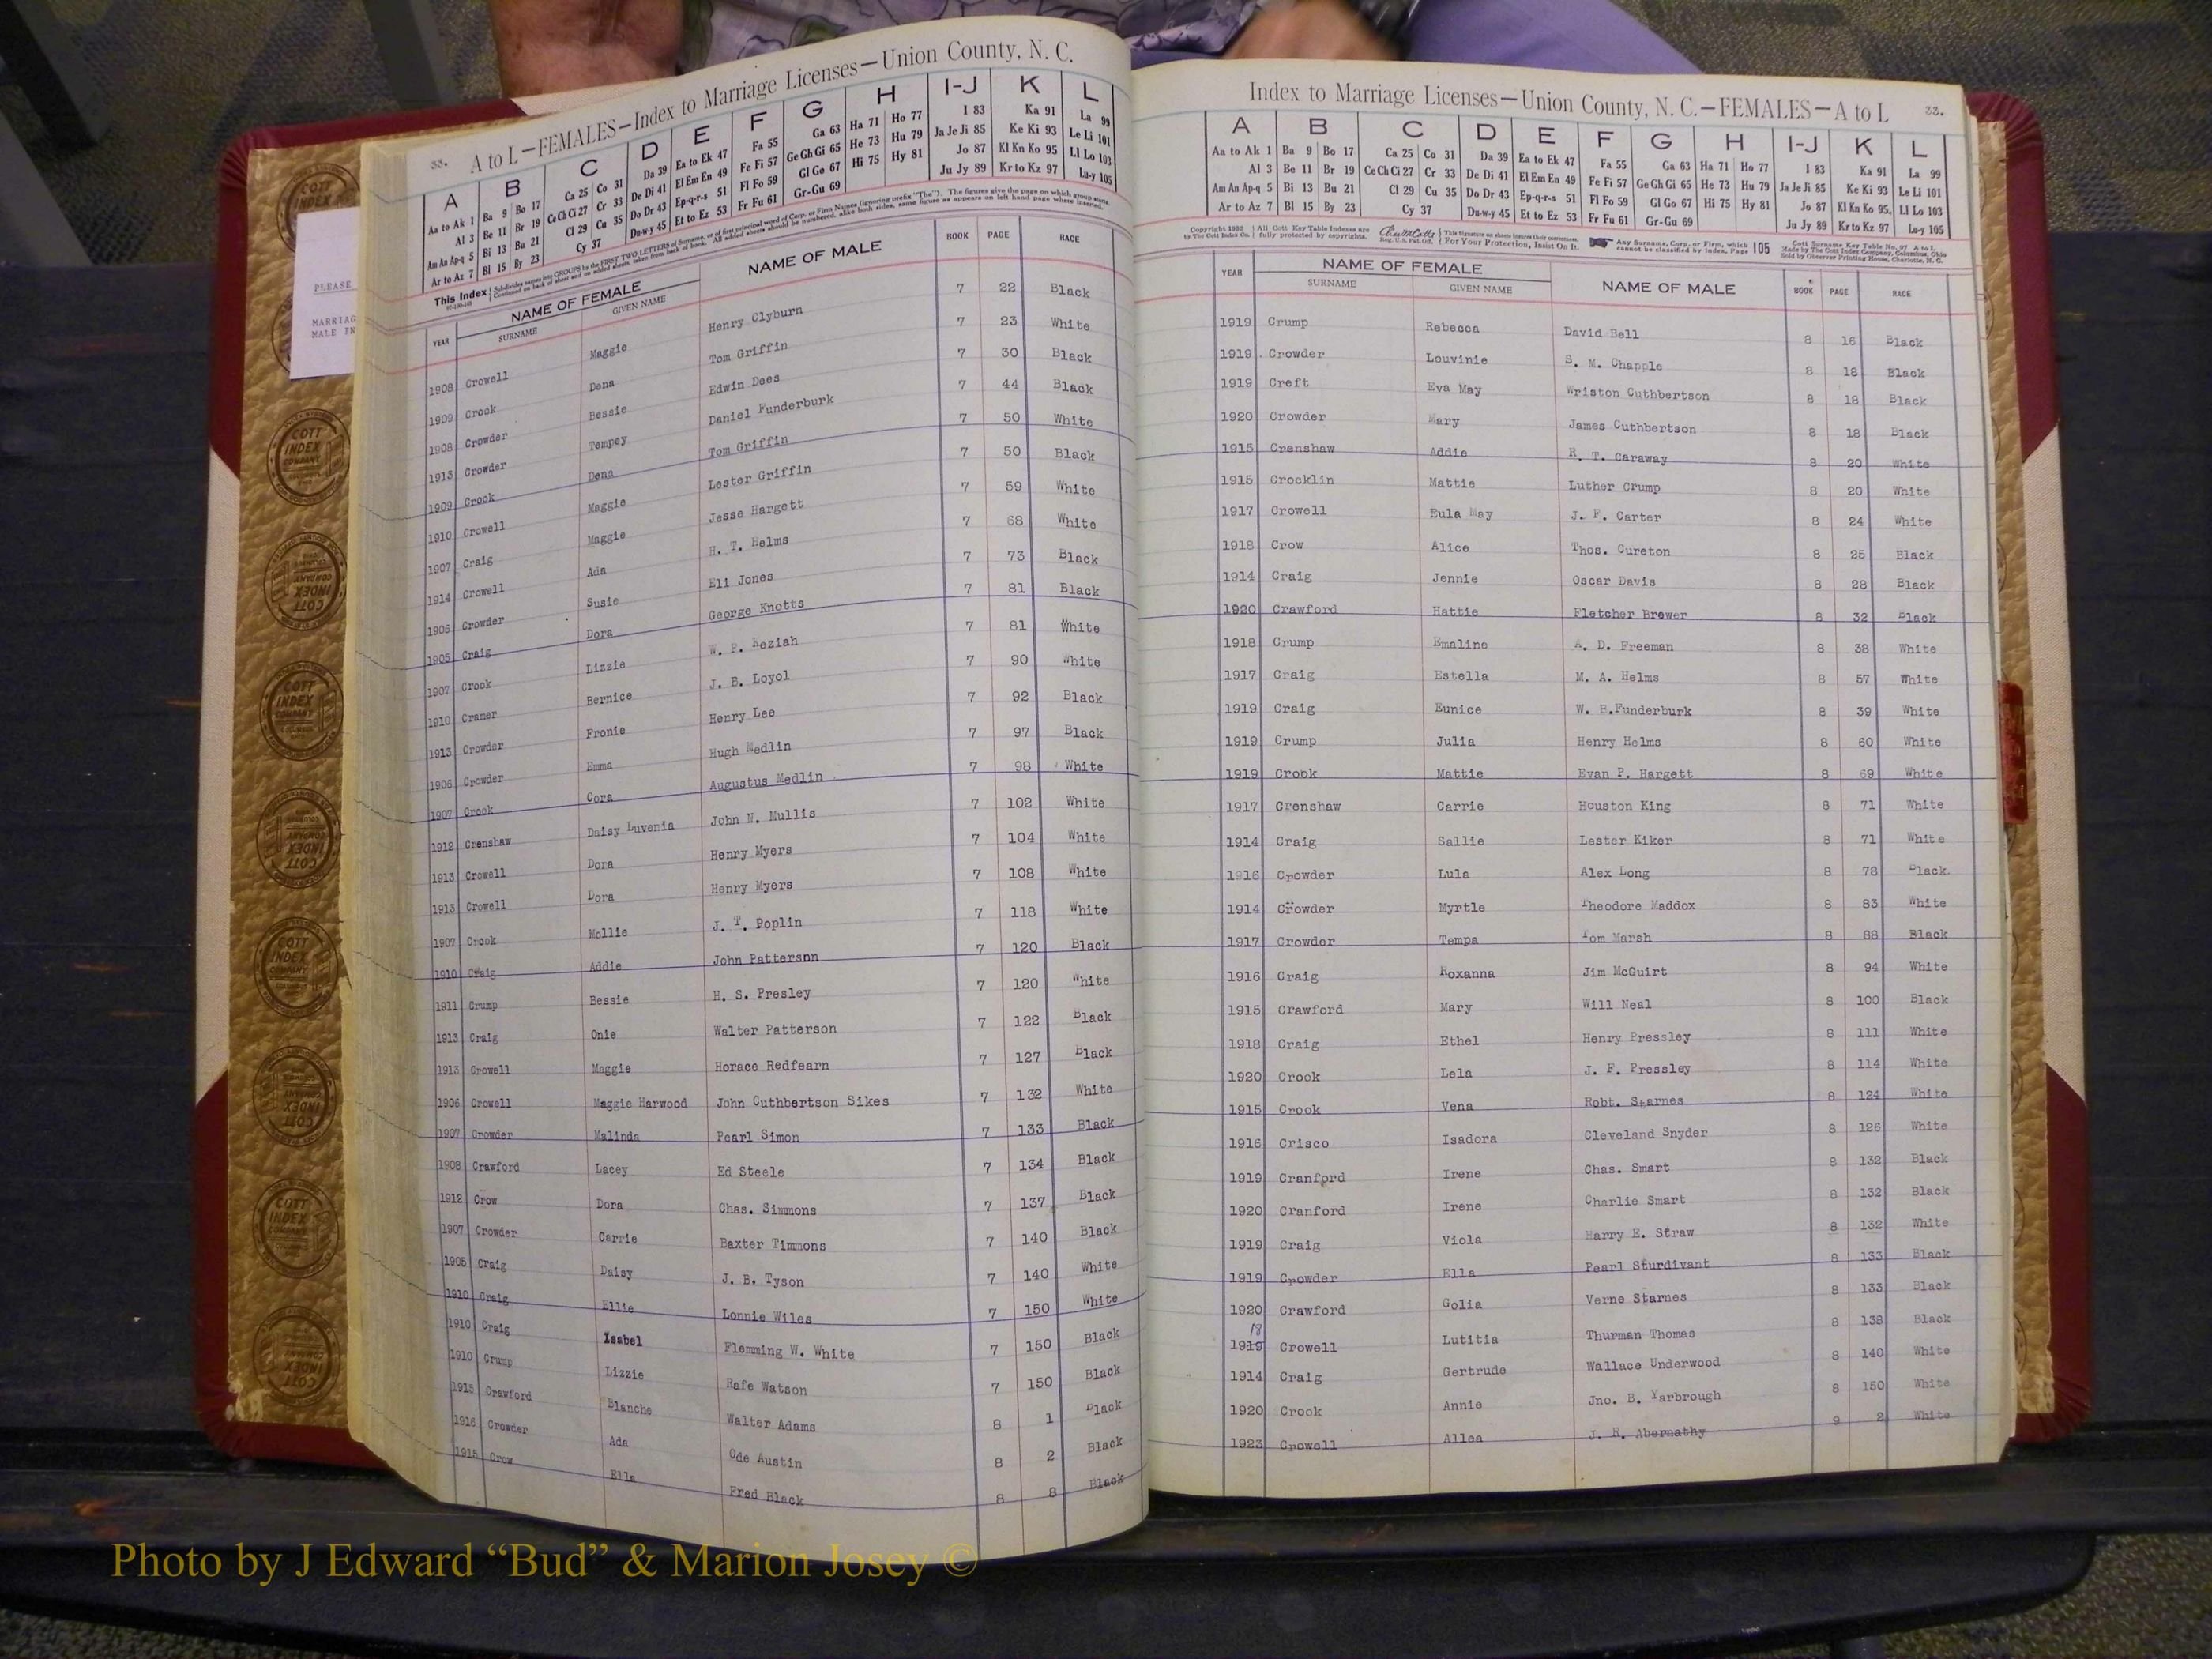 PLEASE
MARRIAG
MALE IN
COTT INDEX COMPANY
33. A to L—FEMALES—Index to Marriage Licenses—Union County, N. C.
A B C D E F G H I-J K L
Aa to Ak 1 Ba 9 Bo 17 Ca 25 Co 31 Da 39 Ea to Ek 47 Fa 55 Ga 63 Ha 71 Ho 77 I 83 Ka 91 La 99
Al 3 Be 11 Br 19 Ce Ch Ci 27 Cr 33 De Di 41 El Em En 49 Fe Fi 57 Ge Gh Gi 65 He 73 Hu 79 Ja Je Ji 85 Ke Ki 93 Le Li 101
Am An Ap-q 5 Bi 13 Bu 21 Cl 29 Cu 35 Do Dr 43 Ep-q-r-s 51 Fl Fo 59 Gl Go 67 Hi 75 Hy 81 Jo 87 Kl Kn Ko 95 Ll Lo 103
Ar to Az 7 Bl 15 By 23 Cy 37 Du-w-y 45 Et to Ez 53 Fr Fu 61 Gr-Gu 69 Ju Jy 89 Kr to Kz 97 Lu-y 105
This Index Subdivides names into GROUPS by the FIRST TWO LETTERS of Surname, or of first principal word of Corp. or Firm Names (ignoring prefix "The"). The figures give the page on which group starts.
Continued on back of sheet and on added sheets, taken from back of book. All added sheets should be numbered, alike both sides, same figure as appears on left hand page where inserted.
YEAR NAME OF FEMALE SURNAME GIVEN NAME NAME OF MALE BOOK PAGE RACE
1908 Crowell Maggie Henry Clyburn 7 22 Black
1909 Crook Dena Tom Griffin 7 23 White
1908 Crowder Bessie Edwin Dees 7 30 Black
1913 Crowder Tempey Daniel Funderburk 7 44 Black
1909 Crook Dena Tom Griffin 7 50 White
1910 Crowell Maggie Lester Griffin 7 50 Black
1907 Craig Maggie Jesse Hargett 7 59 White
1914 Crowell Ada H. T. Helms 7 68 White
1906 Crowder Susie Eli Jones 7 73 Black
1905 Craig Dora George Knotts 7 81 Black
1907 Crook Lizzie W. P. Keziah 7 81 White
1910 Cramer Bernice J. B. Loyol 7 90 White
1913 Crowder Fronie Henry Lee 7 92 Black
1906 Crowder Emma Hugh Medlin 7 97 Black
1907 Crook Cora Augustus Medlin 7 98 White
1912 Crenshaw Daisy Luvenia John N. Mullis 7 102 White
1913 Crowell Dora Henry Myers 7 104 White
1913 Crowell Dora Henry Myers 7 108 White
1907 Crook Mollie J. T. Poplin 7 118 White
1910 Craig Addie John Patterson 7 120 Black
1911 Crump Bessie H. S. Presley 7 120 White
1913 Craig Onie Walter Patterson 7 122 Black
1913 Crowell Maggie Horace Redfearn 7 127 Black
1906 Crowell Maggie Harwood John Cuthbertson Sikes 7 132 White
1907 Crowder Malinda Pearl Simon 7 133 Black
1908 Crawford Lacey Ed Steele 7 134 Black
1912 Crow Dora Chas. Simmons 7 137 Black
1907 Crowder Carrie Baxter Timmons 7 140 Black
1905 Craig Daisy J. B. Tyson 7 140 White
1910 Craig Ellie Lonnie Wiles 7 150 White
1910 Craig Isabel Flemming W. White 7 150 Black
1910 Crump Lizzie Rafe Watson 7 150 Black
1915 Crawford Blanche Walter Adams 8 1 Black
1916 Crowder Ada Ode Austin 8 2 Black
1915 Crow Ella Fred Black 8 8 Black
Index to Marriage Licenses—Union County, N. C.—FEMALES—A to L 33.
A B C D E F G H I-J K L
Aa to Ak 1 Ba 9 Bo 17 Ca 25 Co 31 Da 39 Ea to Ek 47 Fa 55 Ga 63 Ha 71 Ho 77 I 83 Ka 91 La 99
Al 3 Be 11 Br 19 Ce Ch Ci 27 Cr 33 De Di 41 El Em En 49 Fe Fi 57 Ge Gh Gi 65 He 73 Hu 79 Ja Je Ji 85 Ke Ki 93 Le Li 101
Am An Ap-q 5 Bi 13 Bu 21 Cl 29 Cu 35 Do Dr 43 Ep-q-r-s 51 Fl Fo 59 Gl Go 67 Hi 75 Hy 81 Jo 87 Kl Kn Ko 95 Ll Lo 103
Ar to Az 7 Bl 15 By 23 Cy 37 Du-w-y 45 Et to Ez 53 Fr Fu 61 Gr-Gu 69 Ju Jy 89 Kr to Kz 97 Lu-y 105
Copyright 1932 by The Cott Index Co. All Cott Key Table Indexes are fully protected by copyrights. Reg. U.S. Pat. Off. This Signature on sheets insures their correctness. For Your Protection, Insist On It. Any Surname, Corp. or Firm, which cannot be classified by index, Page 105 Cott Surname Key Table No. 97 A to L Made by The Cott Index Company, Columbus, Ohio Sold by Observer Printing House, Charlotte, N. C.
YEAR NAME OF FEMALE SURNAME GIVEN NAME NAME OF MALE BOOK PAGE RACE
1919 Crump Rebecca David Bell 8 16 Black
1919 Crowder Louvinie S. M. Chapple 8 18 Black
1919 Creft Eva May Wriston Cuthbertson 8 18 Black
1920 Crowder Mary James Cuthbertson 8 18 Black
1915 Crenshaw Addie R. T. Caraway 8 20 White
1915 Crocklin Mattie Luther Crump 8 20 White
1917 Crowell Eula May J. F. Carter 8 24 White
1918 Crow Alice Thos. Cureton 8 25 Black
1914 Craig Jennie Oscar Davis 8 28 Black
1920 Crawford Hattie Fletcher Brewer 8 32 Black
1918 Crump Emaline A. D. Freeman 8 38 White
1917 Craig Estella M. A. Helms 8 57 White
1919 Craig Eunice W. B.Funderburk 8 39 White
1919 Crump Julia Henry Helms 8 60 White
1919 Crook Mattie Evan P. Hargett 8 69 White
1917 Crenshaw Carrie Houston King 8 71 White
1914 Craig Sallie Lester Kiker 8 71 White
1916 Crowder Lula Alex Long 8 78 Black.
1914 Crowder Myrtle Theodore Maddox 8 83 White
1917 Crowder Tempa Tom Marsh 8 88 Black
1916 Craig Roxanna Jim McGuirt 8 94 White
1915 Crawford Mary Will Neal 8 100 Black
1918 Craig Ethel Henry Pressley 8 111 White
1920 Crook Lela J. F. Pressley 8 114 White
1915 Crook Vena Robt. Starnes 8 124 White
1916 Crisco Isadora Cleveland Snyder 8 126 White
1919 Cranford Irene Chas. Smart 8 132 Black
1920 Cranford Irene Charlie Smart 8 132 Black
1919 Craig Viola Harry E. Straw 8 132 White
1919 Crowder Ella Pearl Sturdivant 8 133 Black
1920 Crawford Golia Verne Starnes 8 133 Black
18
1919 Crowell Lutitia Thurman Thomas 8 138 Black
1914 Craig Gertrude Wallace Underwood 8 140 White
1920 Crook Annie Jno. B. Yarbrough 8 150 White
1923 Crowell Allea J. R. Abernathy 9 2 White
Photo by J Edward “Bud” & Marion Josey ©